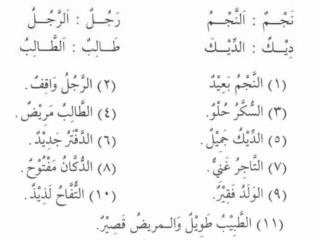 نَجْمٌ : اَلنَّجْمُ    رَجُلٌ : اَلرَّجُلُ
دِيكٌ : اَلدِّيْكَ    طَالِبٌ : اَلطَّالِبُ
(١) النَّجْمُ بَعِيْدٌ.    (٢) الرَّجُلُ وَاقِفٌ.
(٣) السُّكَّرُ حُلْوٌ.    (٤) الطَّالِبُ مَرِيْضٌ.
(٥) الدِّيْكُ جَمِيْلٌ.    (٦) الدَّفْتَرُ جَدِيْدٌ.
(٧) التَّاجِرُ غَنِيٌّ.    (٨) الدُّكَّانُ مَفْتُوْحٌ.
(٩) الوَلَدُ فَقِيْرٌ.    (١٠) التُّفَّاحُ لَذِيْذٌ.
(١١) الطَّبِيْبُ طَوِيْلٌ وَالـمريضُ قَصِيْرٌ.